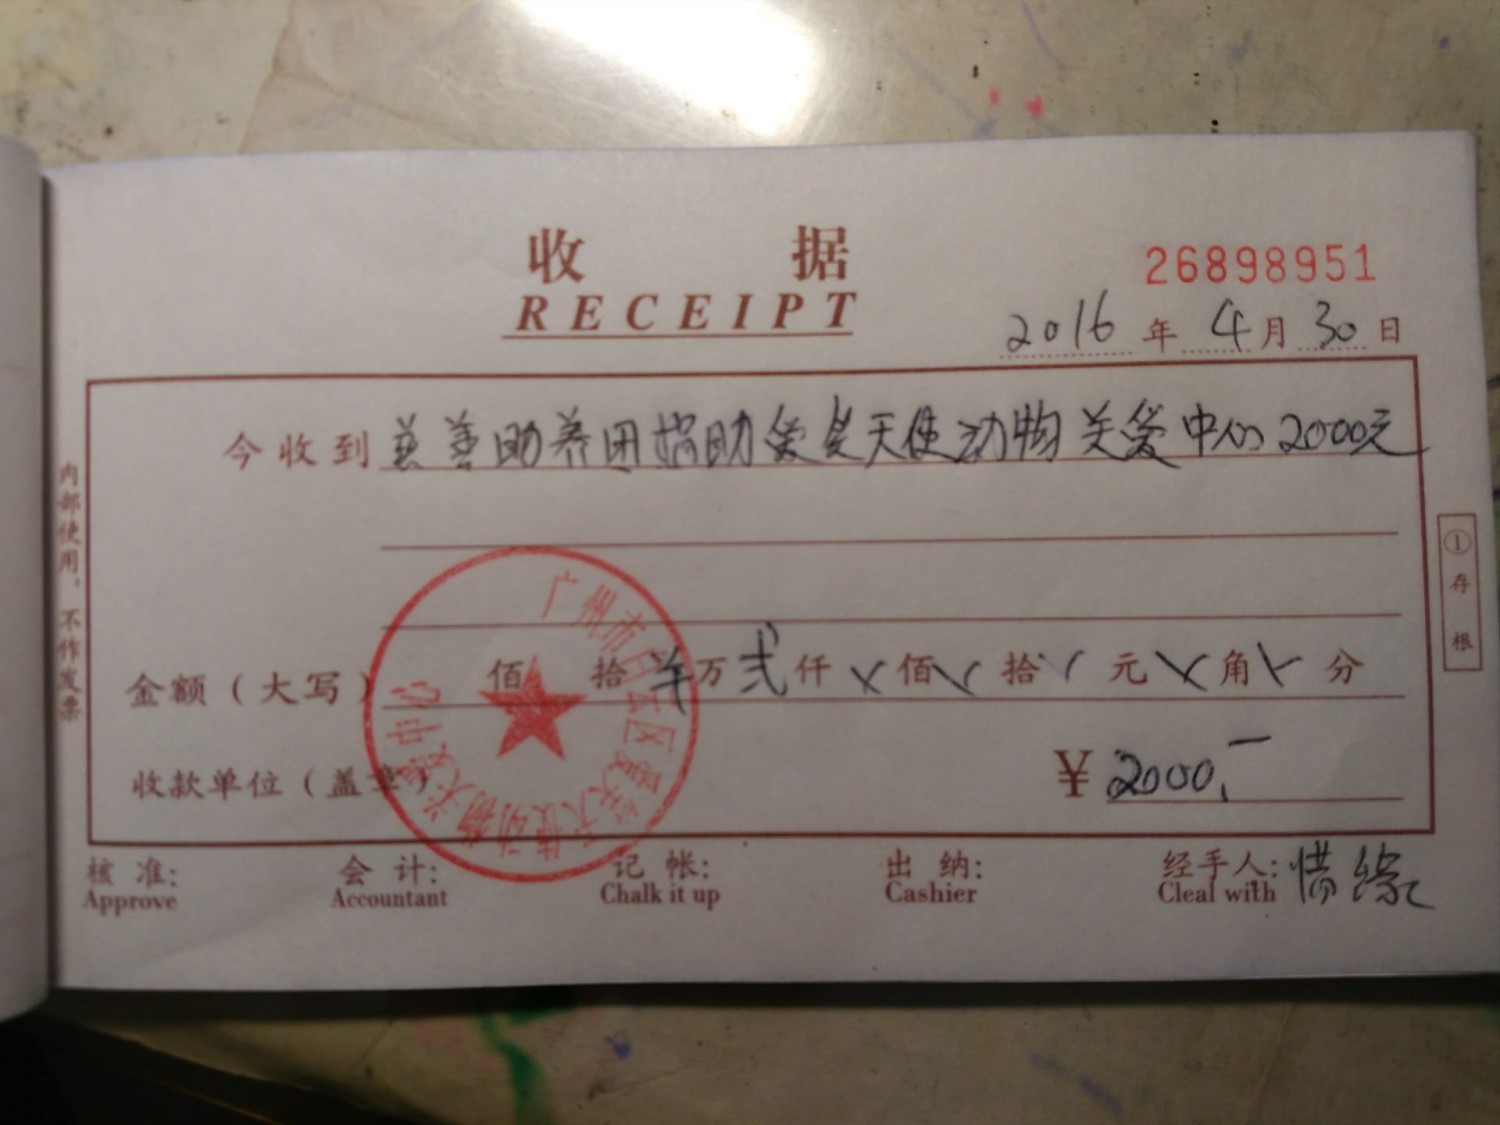 收 据
RECEIPT
26898951
2016 年 4 月 30 日
今收到 慈善助养团捐助爱是天使动物关爱中心2000元
金额（大写） 佰 拾 万 贰 仟 佰 拾 元 角 分
收款单位（盖章）
¥ 2000.-
核 准: 会 计: 记 帐: 出 纳: 经手人: 惜缘
Approve Accountant Chalk it up Cashier Cleal with
内部使用，不作发票
① 存 根
广州市白云区爱是天使动物关爱中心